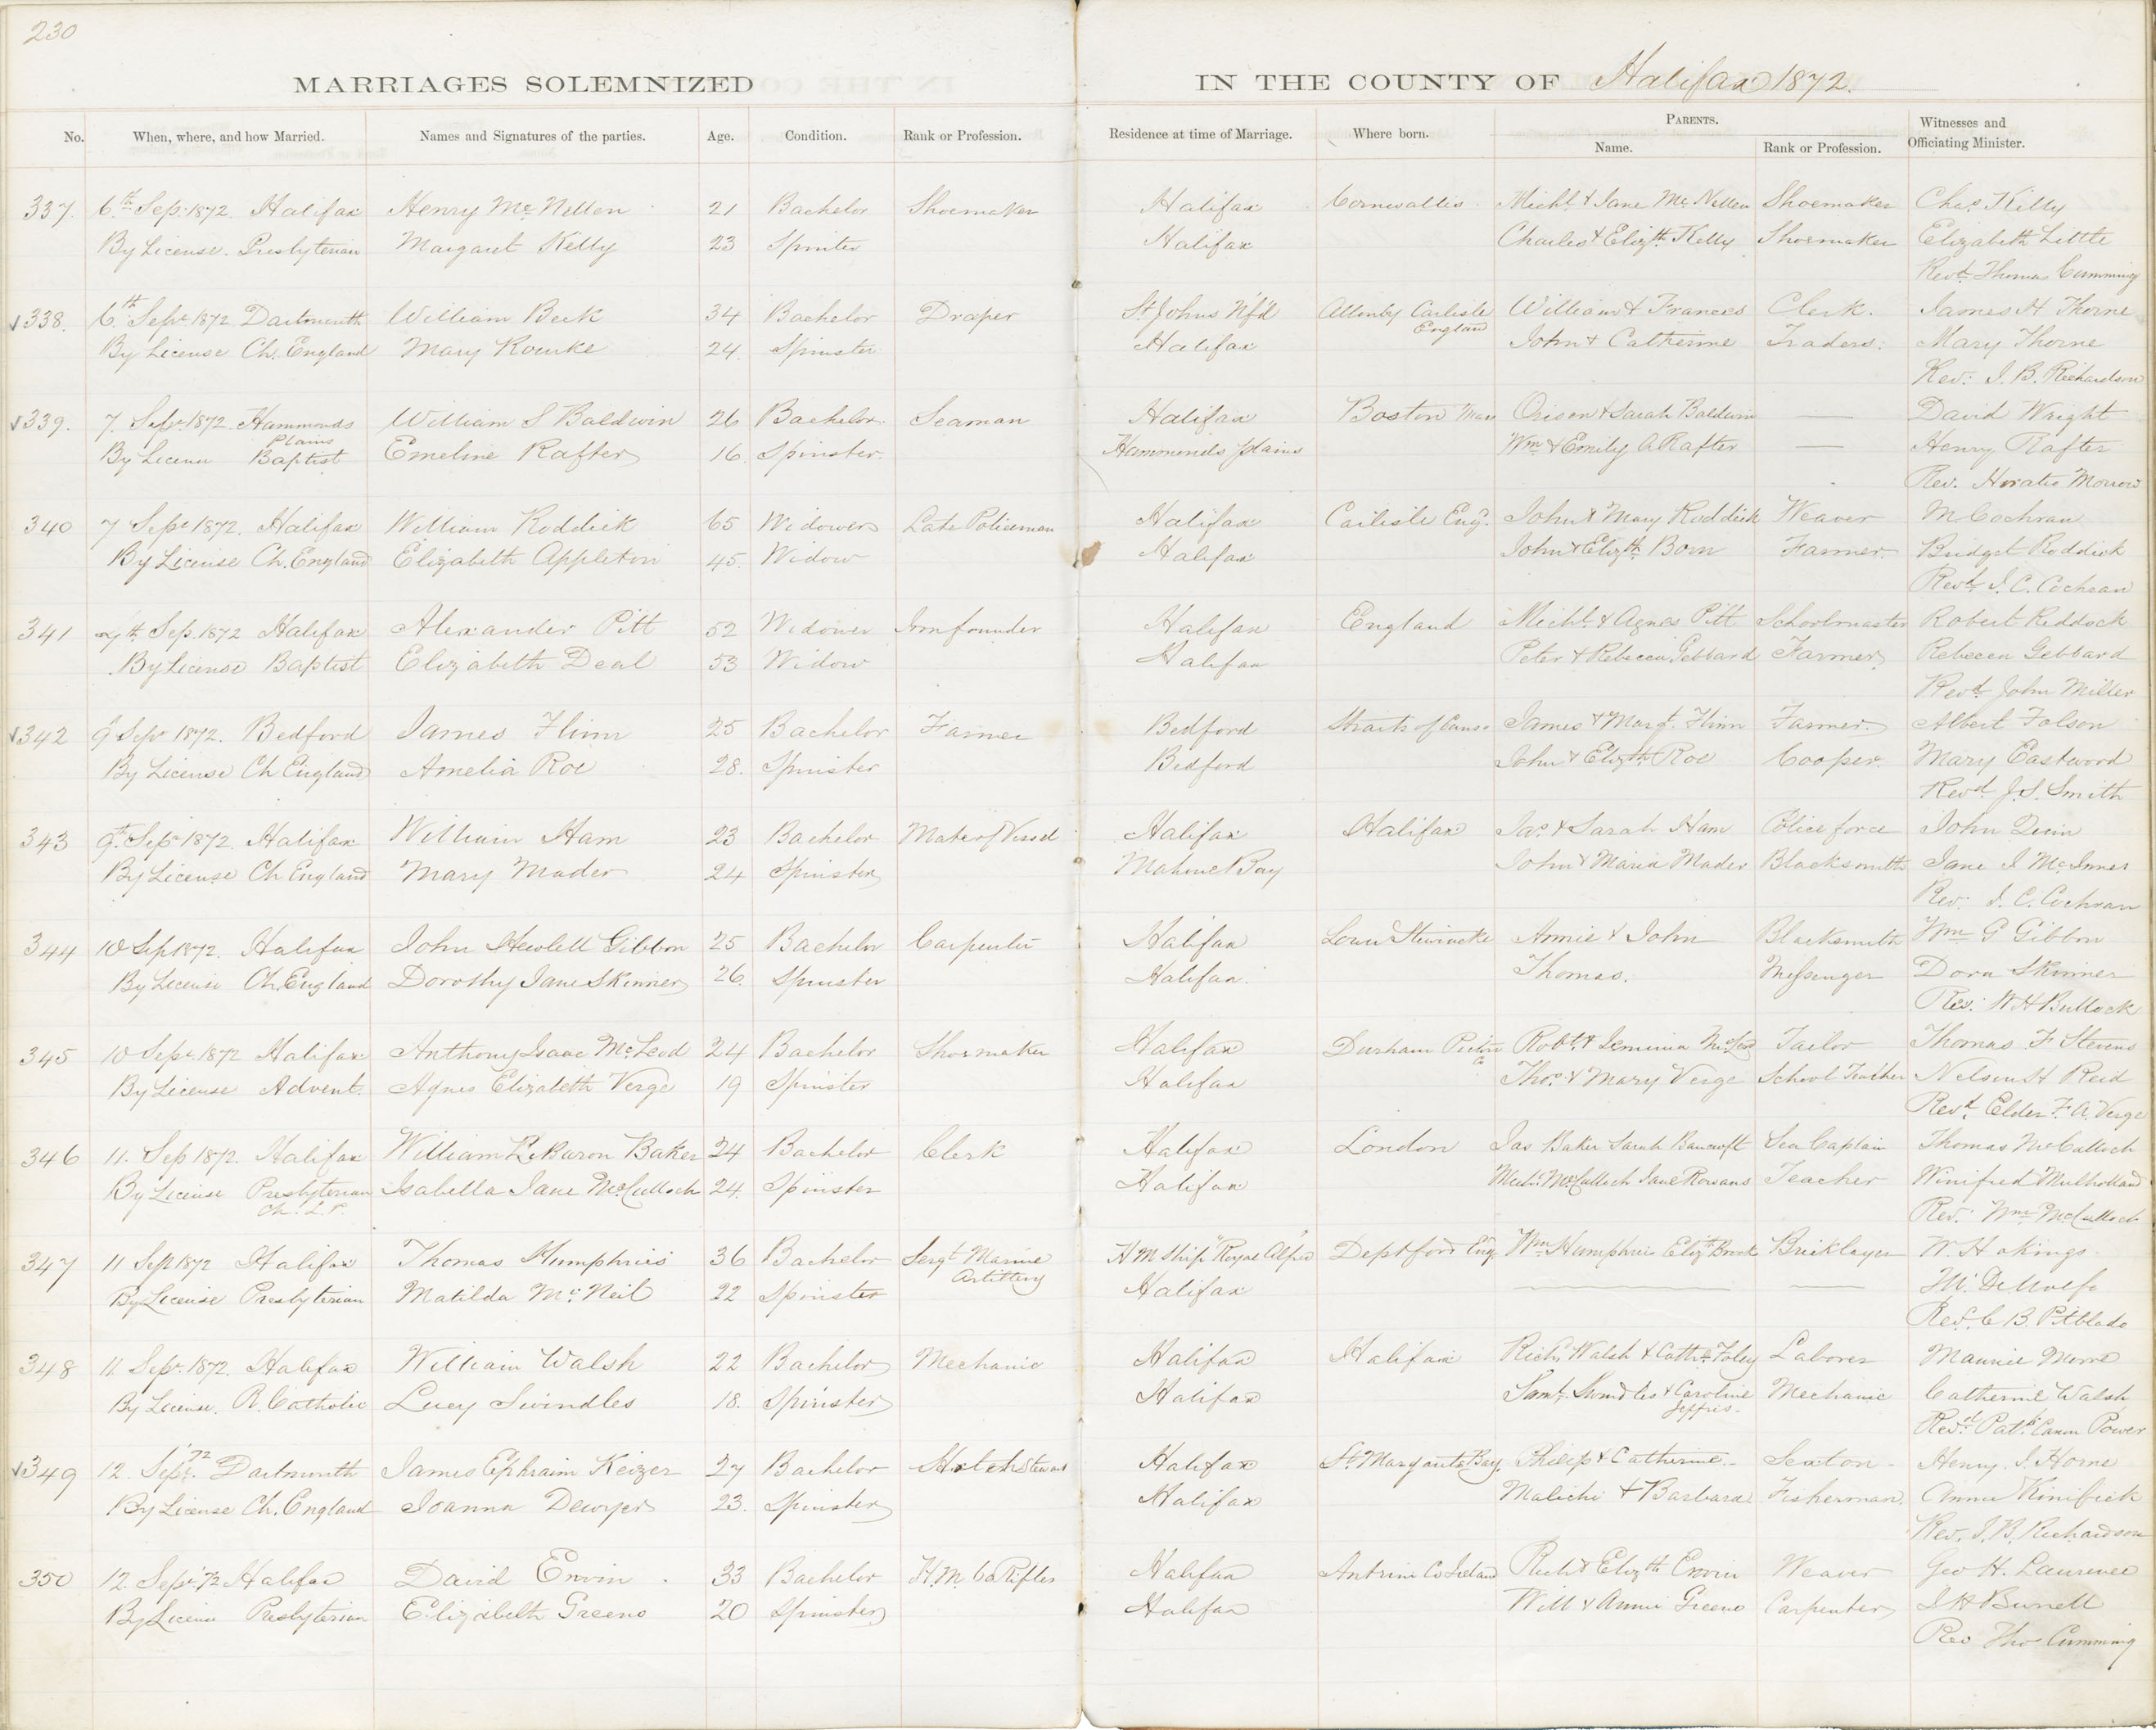 230
MARRIAGES SOLEMNIZED IN THE COUNTY OF Halifax 1872.
No. When, where, and how Married. Names and Signatures of the parties. Age. Condition. Rank or Profession. Residence at time of Marriage. Where born. PARENTS. Name. Rank or Profession. Witnesses and Officiating Minister.
337. 6th Sep: 1872. Halifax Henry Mc Nellen 21 Bachelor Shoemaker Halifax Cornwallis Michl & Jane Mc Nellen Shoemaker Chas Killy
By License. Presbyterian Margaret Kelly 23 Spinster Halifax Charles & Elizth Kelly Shoemaker Elizabeth Little
Revd Thomas Cumming
338. 6th Sept 1872 Dartmouth William Beck 34 Bachelor Draper St Johns Nfd Carlisle England William & Frances Clerk. James H Thorne
By License Ch. England Mary Rourke 24. Spinster Halifax John & Catherine Traders. Mary Thorne
Rev: J. B. Richardson
339. 7. Sepr 1872. Hammonds Plains William S Baldwin 26 Bachelor. Seaman Halifax Boston Mass Orison & Sarah Baldwin — David Wright
By License Baptist Emeline Rafter 16. Spinster. Hammonds plains Wm & Emily A Rafter — Henry Rafter
Rev. Horatio Morrow
340 7 Sept 1872. Halifax William Roddick 65 Widower Late Policeman Halifax Carlisle Eng. John & Mary Roddick Weaver M Cochran
By License Ch. England Elizabeth Appleton 45. Widow Halifax John & Elizth Born Farmer. Bridget Roddick
Revd J. C. Cochran
341 Sep. 1872 Halifax Alexander Pitt 52 Widower Ironfounder Halifax England Michl & Agnes Pitt Schoolmaster Robert Reddock
By License Baptist Elizabeth Deal 53 Widow Halifax Peter & Rebecca Gebbard Farmer Rebecca Gebbard
Revd John Miller
342 9 Sepr 1872. Bedford James Flinn 25 Bachelor Farmer Bedford Straits of Canso James & Margt. Flinn Farmer. Albert Folson
By License Ch England Amelia Roe 28. Spinster Bedford John & Elizth Roe Cooper. Mary Eastwood
Revd J. S. Smith
343 9th Sepr 1872. Halifax William Ham 23 Bachelor Mate of Vessel Halifax Halifax Jas & Sarah Ham Police force John Quin
By License Ch England Mary Mader 24 Spinster Mahone Bay John & Maria Mader Blacksmith Jane J McInnes
Rev: J. C. Cochran
344 10 Sep 1872. Halifax John Hewlett Gibbon 25 Bachelor Carpenter Halifax Lower Stewiacke Annie & John Blacksmith Wm G Gibbon
By License Ch. England Dorothy Jane Skinner 26. Spinster Halifax. Thomas. Messenger Dora Skinner
Rev: W H Bullock
345 10 Sept 1872 Halifax Anthony Isaac McLeod 24 Bachelor Shoemaker Halifax Durham Pictou Co Robt & Jemima McLeod Tailor Thomas F Stevens
By License Advent. Agnes Elizabeth Verge 19 Spinster Halifax Thos & Mary Verge School Teacher Nelson H Reid
Revd. Elder F. A. Verge
346 11. Sep 1872. Halifax William LeBaron Baker 24 Bachelor Clerk Halifax London Jas Baker Sarah Bancroft Sea Captain Thomas McCulloch
By License Presbyterian Ch. L. P. Isabella Jane McCulloch 24. Spinster Halifax Michl McCulloch Jane Rowans Teacher Winifred Mulholland
Rev: Wm McCulloch
347 11 Sep 1872 Halifax Thomas Humphries 36 Bachelor Sergt Marine Artillery H M Ship "Royal Alfred" Deptford Eng. Wm Humphries Elizth Brook Bricklayer W. H akings
By License Presbyterian Matilda McNeil 22 Spinster Halifax — — M. DeWolfe
Rev. C B. Pitblado
348 11 Sepr 1872. Halifax William Walsh 22 Bachelor Mechanic Halifax Halifax Richd Walsh & Cathe Foley Laborer Morne
By License. R. Catholic Lucy Swindles 18. Spinster Halifax Saml. Swindles & Caroline Jeffris. Mechanic Catherine Walsh
Revd Patk Canon Power
349 12. Sepr. '72 Dartmouth James Ephraim Keizer 27 Bachelor Steward Halifax St. Margarets Bay. Philip & Catherine. Sexton Henry. J. Horne
By License Ch. England Joanna Dewyer 23. Spinster Halifax Malichi & Barbara Fisherman. Annie Kinifeck
Rev. J. B. Richardson
350 12. Sepr 72 Halifax David Ervin 33 Bachelor H. M. 60 Rifles Halifax Antrim Co Ireland Richd & Elizth Ervin Weaver Geo H. Laurence
By License Presbyterian Elizabeth Greeno 20 Spinster Halifax Will & Annie Greeno Carpenter J H Burrell
Rev Thos Cumming